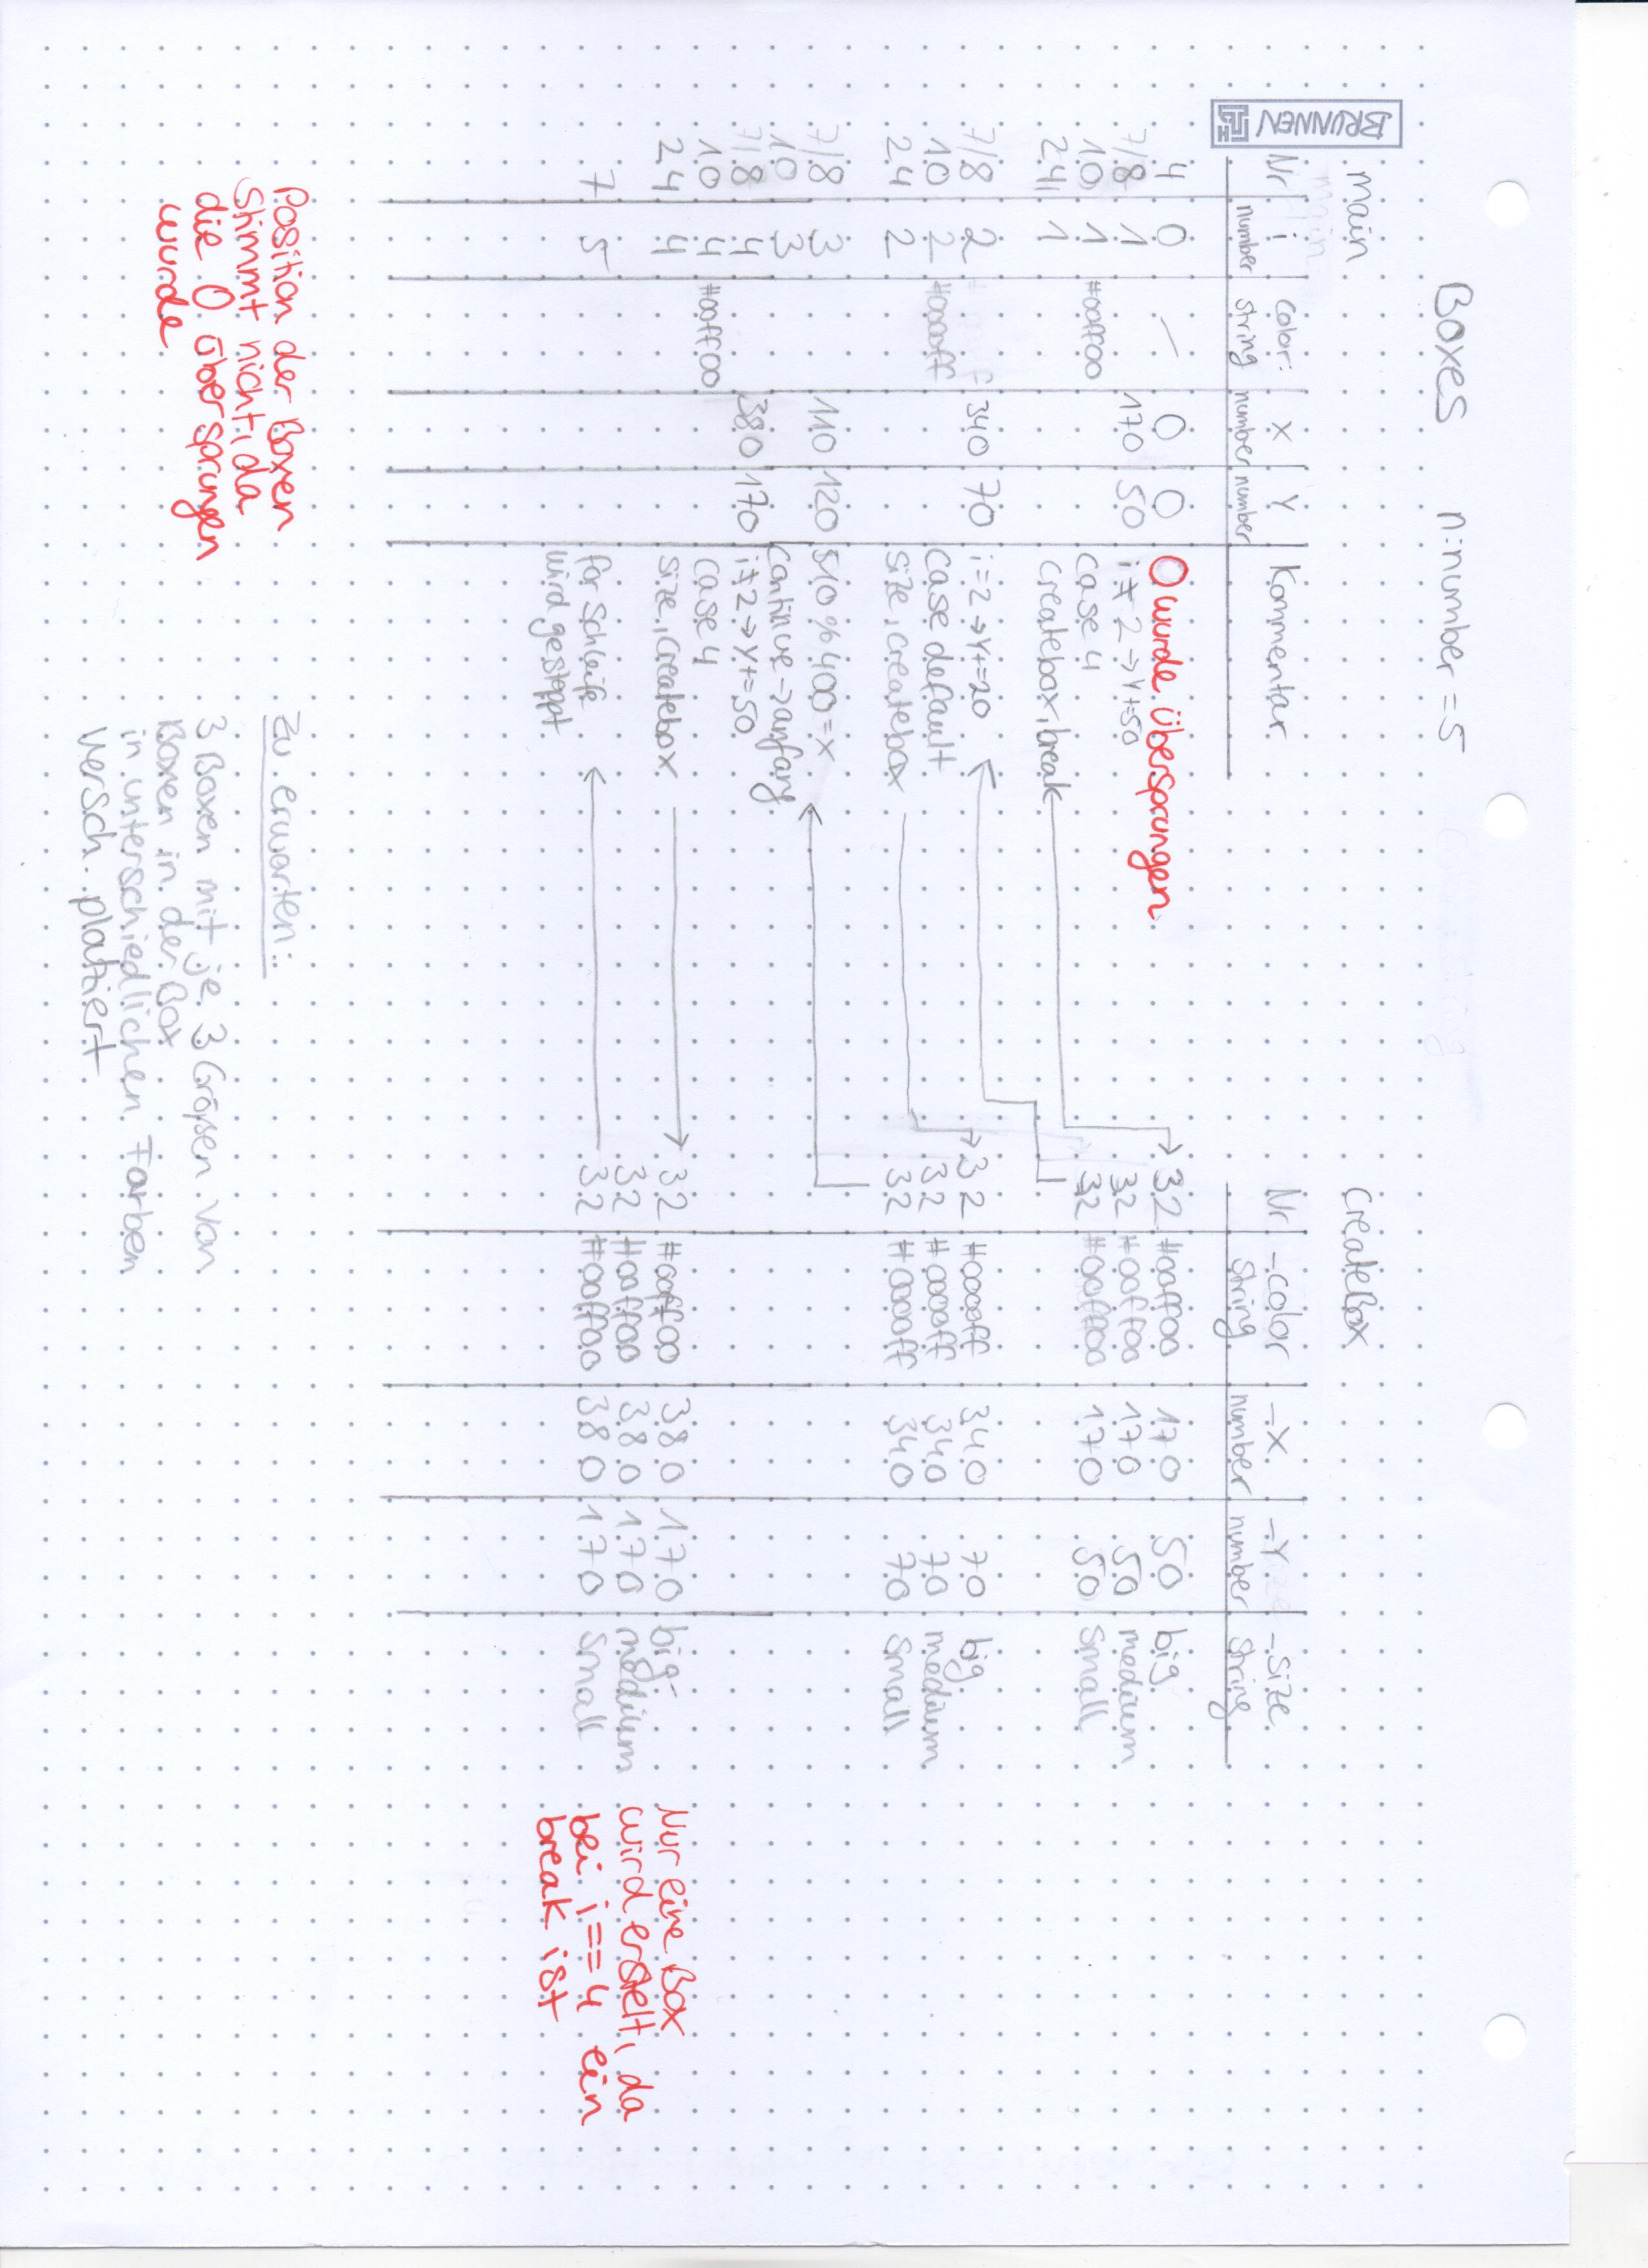 Boxes n:number = 5
BRUNNEN
main
main
Nr i color: x Y Kommentar
number string number number
4 0 — 0 0 0 wurde übersprungen
7/8 1 170 50 i ≠ 2 → Y+=50
10 1 #00ff00 case 4
24 1 createbox, break
7/8 2 340 70 i=2 → Y+=20
10 2 #0000ff case default
24 2 size, createbox
7/8 3 110 120 510 % 400 = x
10 3 continue → anfang
7/8 4 380 170 i≠2 → Y+=50
10 4 #00ff00 case 4
24 4 size, createbox
7 5 for Schleife
wird gestoppt
createBox
Nr _color _x _Y _size
string number number string
32 #00ff00 170 50 big
32 #00ff00 170 50 medium
32 #00ff00 170 50 small
32 #0000ff 340 70 big
32 #0000ff 340 70 medium
32 #0000ff 340 70 small
32 #00ff00 380 170 big
32 #00ff00 380 170 medium
32 #00ff00 380 170 small
Nur eine Box
wird erstelt, da
bei i==4 ein
break ist
Position der Boxen
stimmt nicht, da
die 0 übersprungen
wurde
Zu erwarten:
3 Boxen mit je 3 Größen von
Boxen in der Box
in unterschiedlichen Farben
versch. platziert